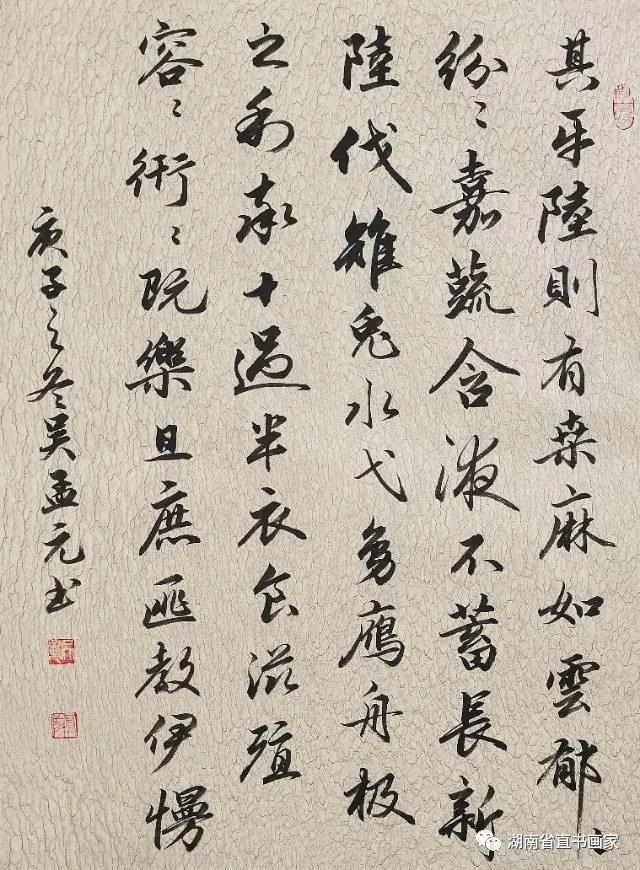 其平陸則有桒麻如雲郁〻
紛〻嘉蔬含液不蓄長新
陸伐雉兔水弋鳧鴈舟極
之利率十過半衣食滋殖
容〻衎〻既樂且庶匪教伊慢
庚子之冬吴孟元书
湖南省直书画家